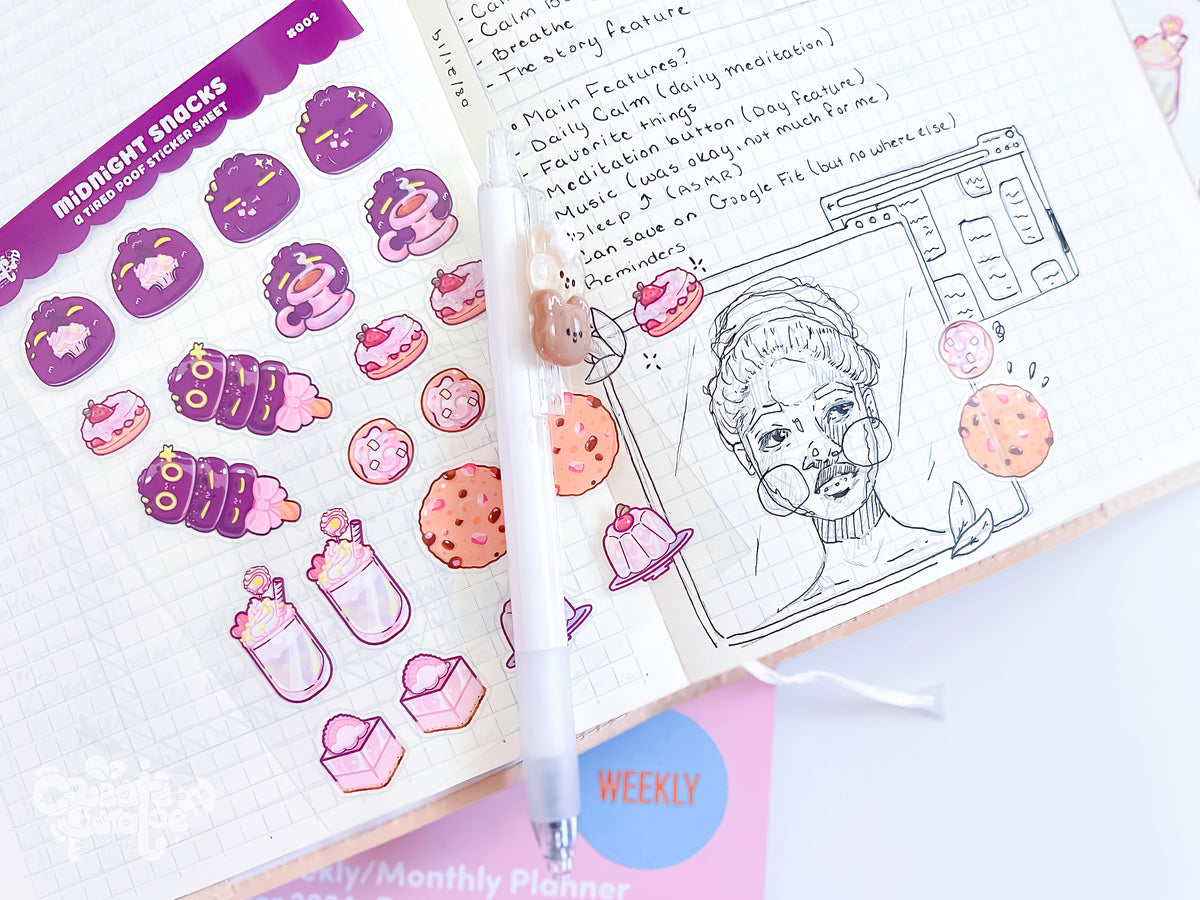 #002
MiDNiGHT SNACKS
a TiRED POOF STiCKER SHEET
- Calm
- Breathe
- The story feature
Main Features?
- Daily Calm (daily meditation)
- Favorite things
Meditation button (Day feature)
Music (was okay, not much for me)
Sleep (ASMR)
Can save on Google Fit (but no where else)
Reminders
WEEKLY
Weekly/Monthly Planner